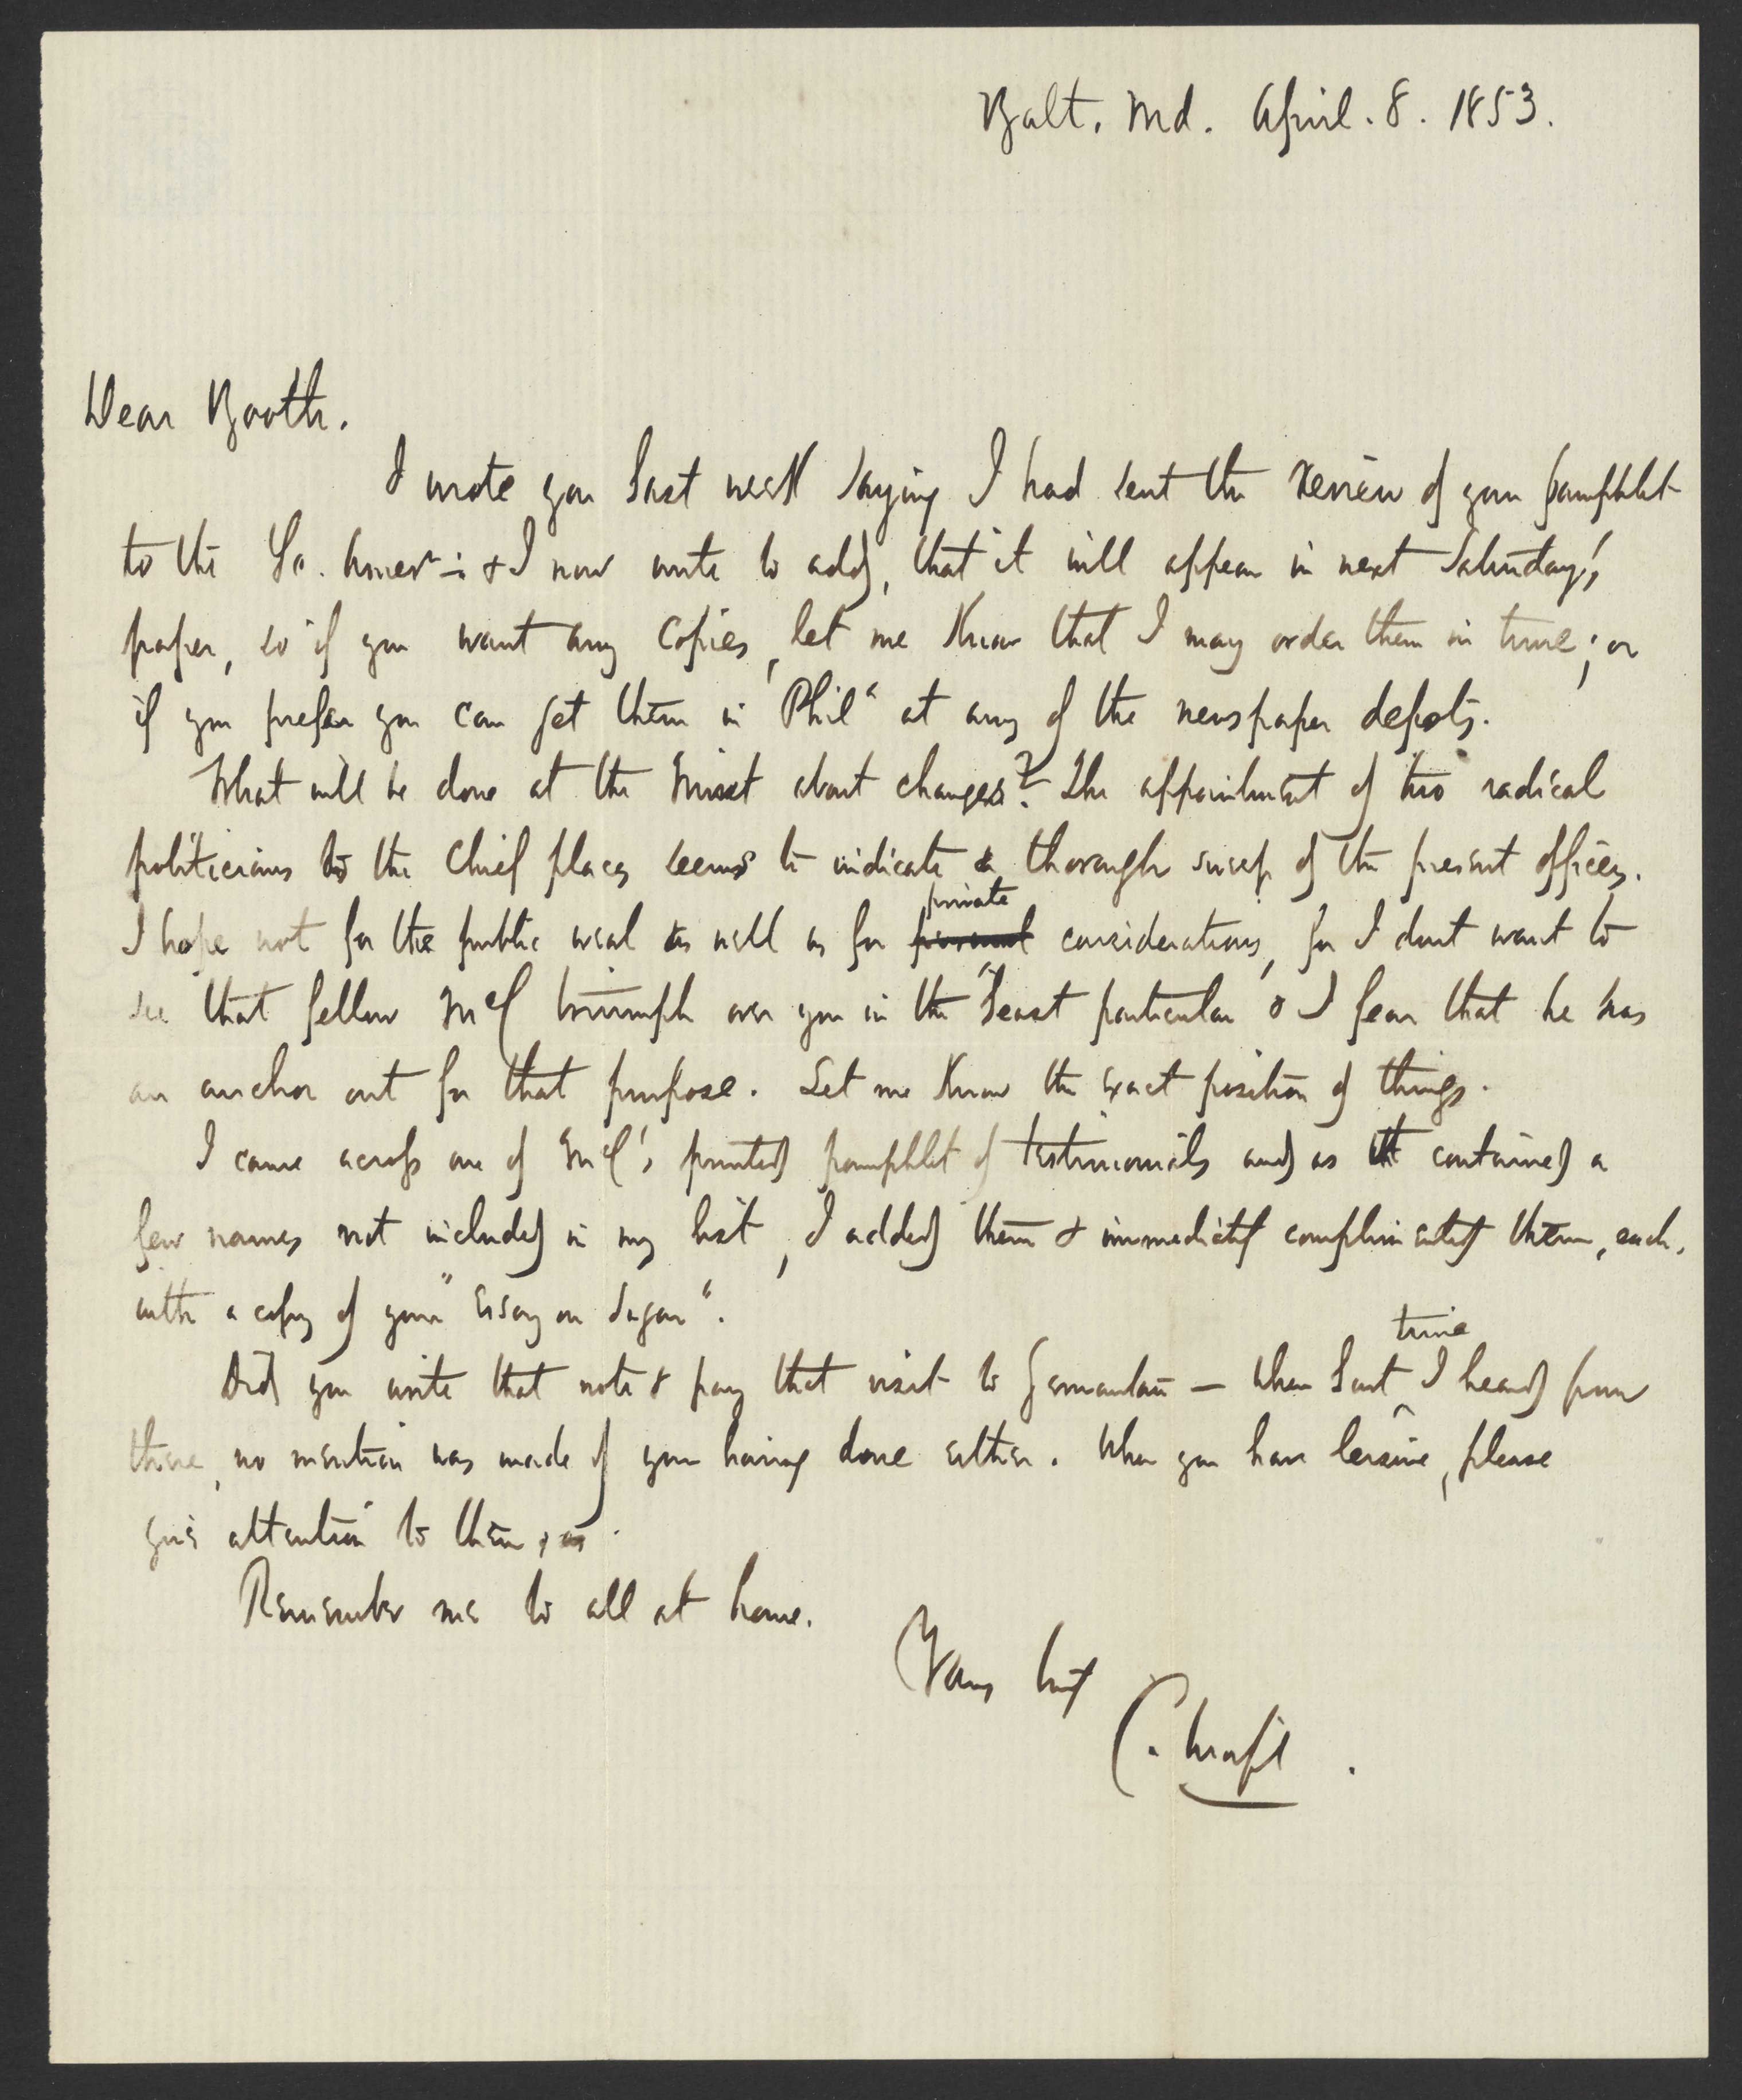 Balt. Md. April. 8. 1853.
Dear Booth.
I wrote you last week saying I had sent the review of your pamphlet
to the Sc. Amer n — & I now write to add, that it will appear in next Saturday's
paper, so if you want any copies, let me know that I may order them in time; or
if you prefer you can get them in Phil a at any of the newspaper depots.
What will be done at the Mint about changes? The appointment of two radical
politicians to the chief places seems to indicate a thorough sweep of the present officers.
private
I hope not for the public weal as well as for personal considerations, for I dont want to
see that fellow McC triumph over you in the least particular & I fear that he has
an anchor out for that purpose. Let me know the exact position of things.
I came across one of McC's printed pamphlet of testimonials and as it contained a
few names not included in my list, I added them & immediately complimented them, each,
with a copy of your "Essay on Sugar".
time
Did you write that note & pay that visit to Germantown — When last I heard from
there, no mention was made of your having done either. When you have leisure, please
give attention to them.
Remember me to all at home.
Yours truly
C. Morfit.